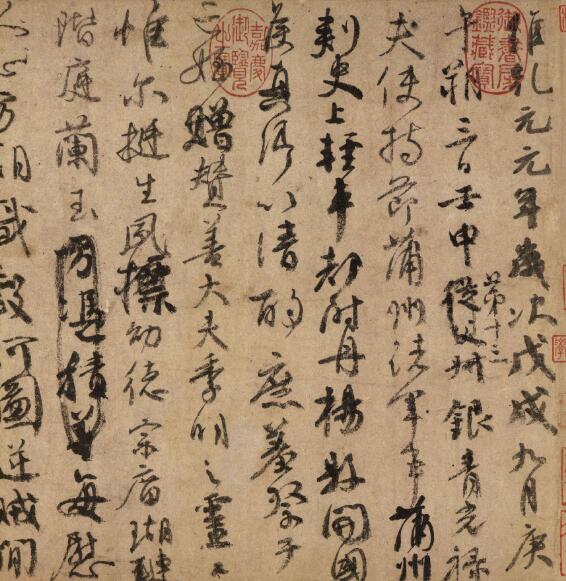 維乾元元年歲次戊戌九月庚
午朔三日壬申第十三從父叔銀青光祿
夫使持節蒲州諸軍事蒲州
刺史上輕車都尉丹楊縣開國
侯真卿以清酌庶羞祭于
亡姪贈贊善大夫季明之靈曰
惟爾挺生夙標幼德宗廟瑚璉
階庭蘭玉方憑積善每慰
人心方期戩穀何圖逆賊間
御書房鑑藏寶
嘉慶御覽之寶